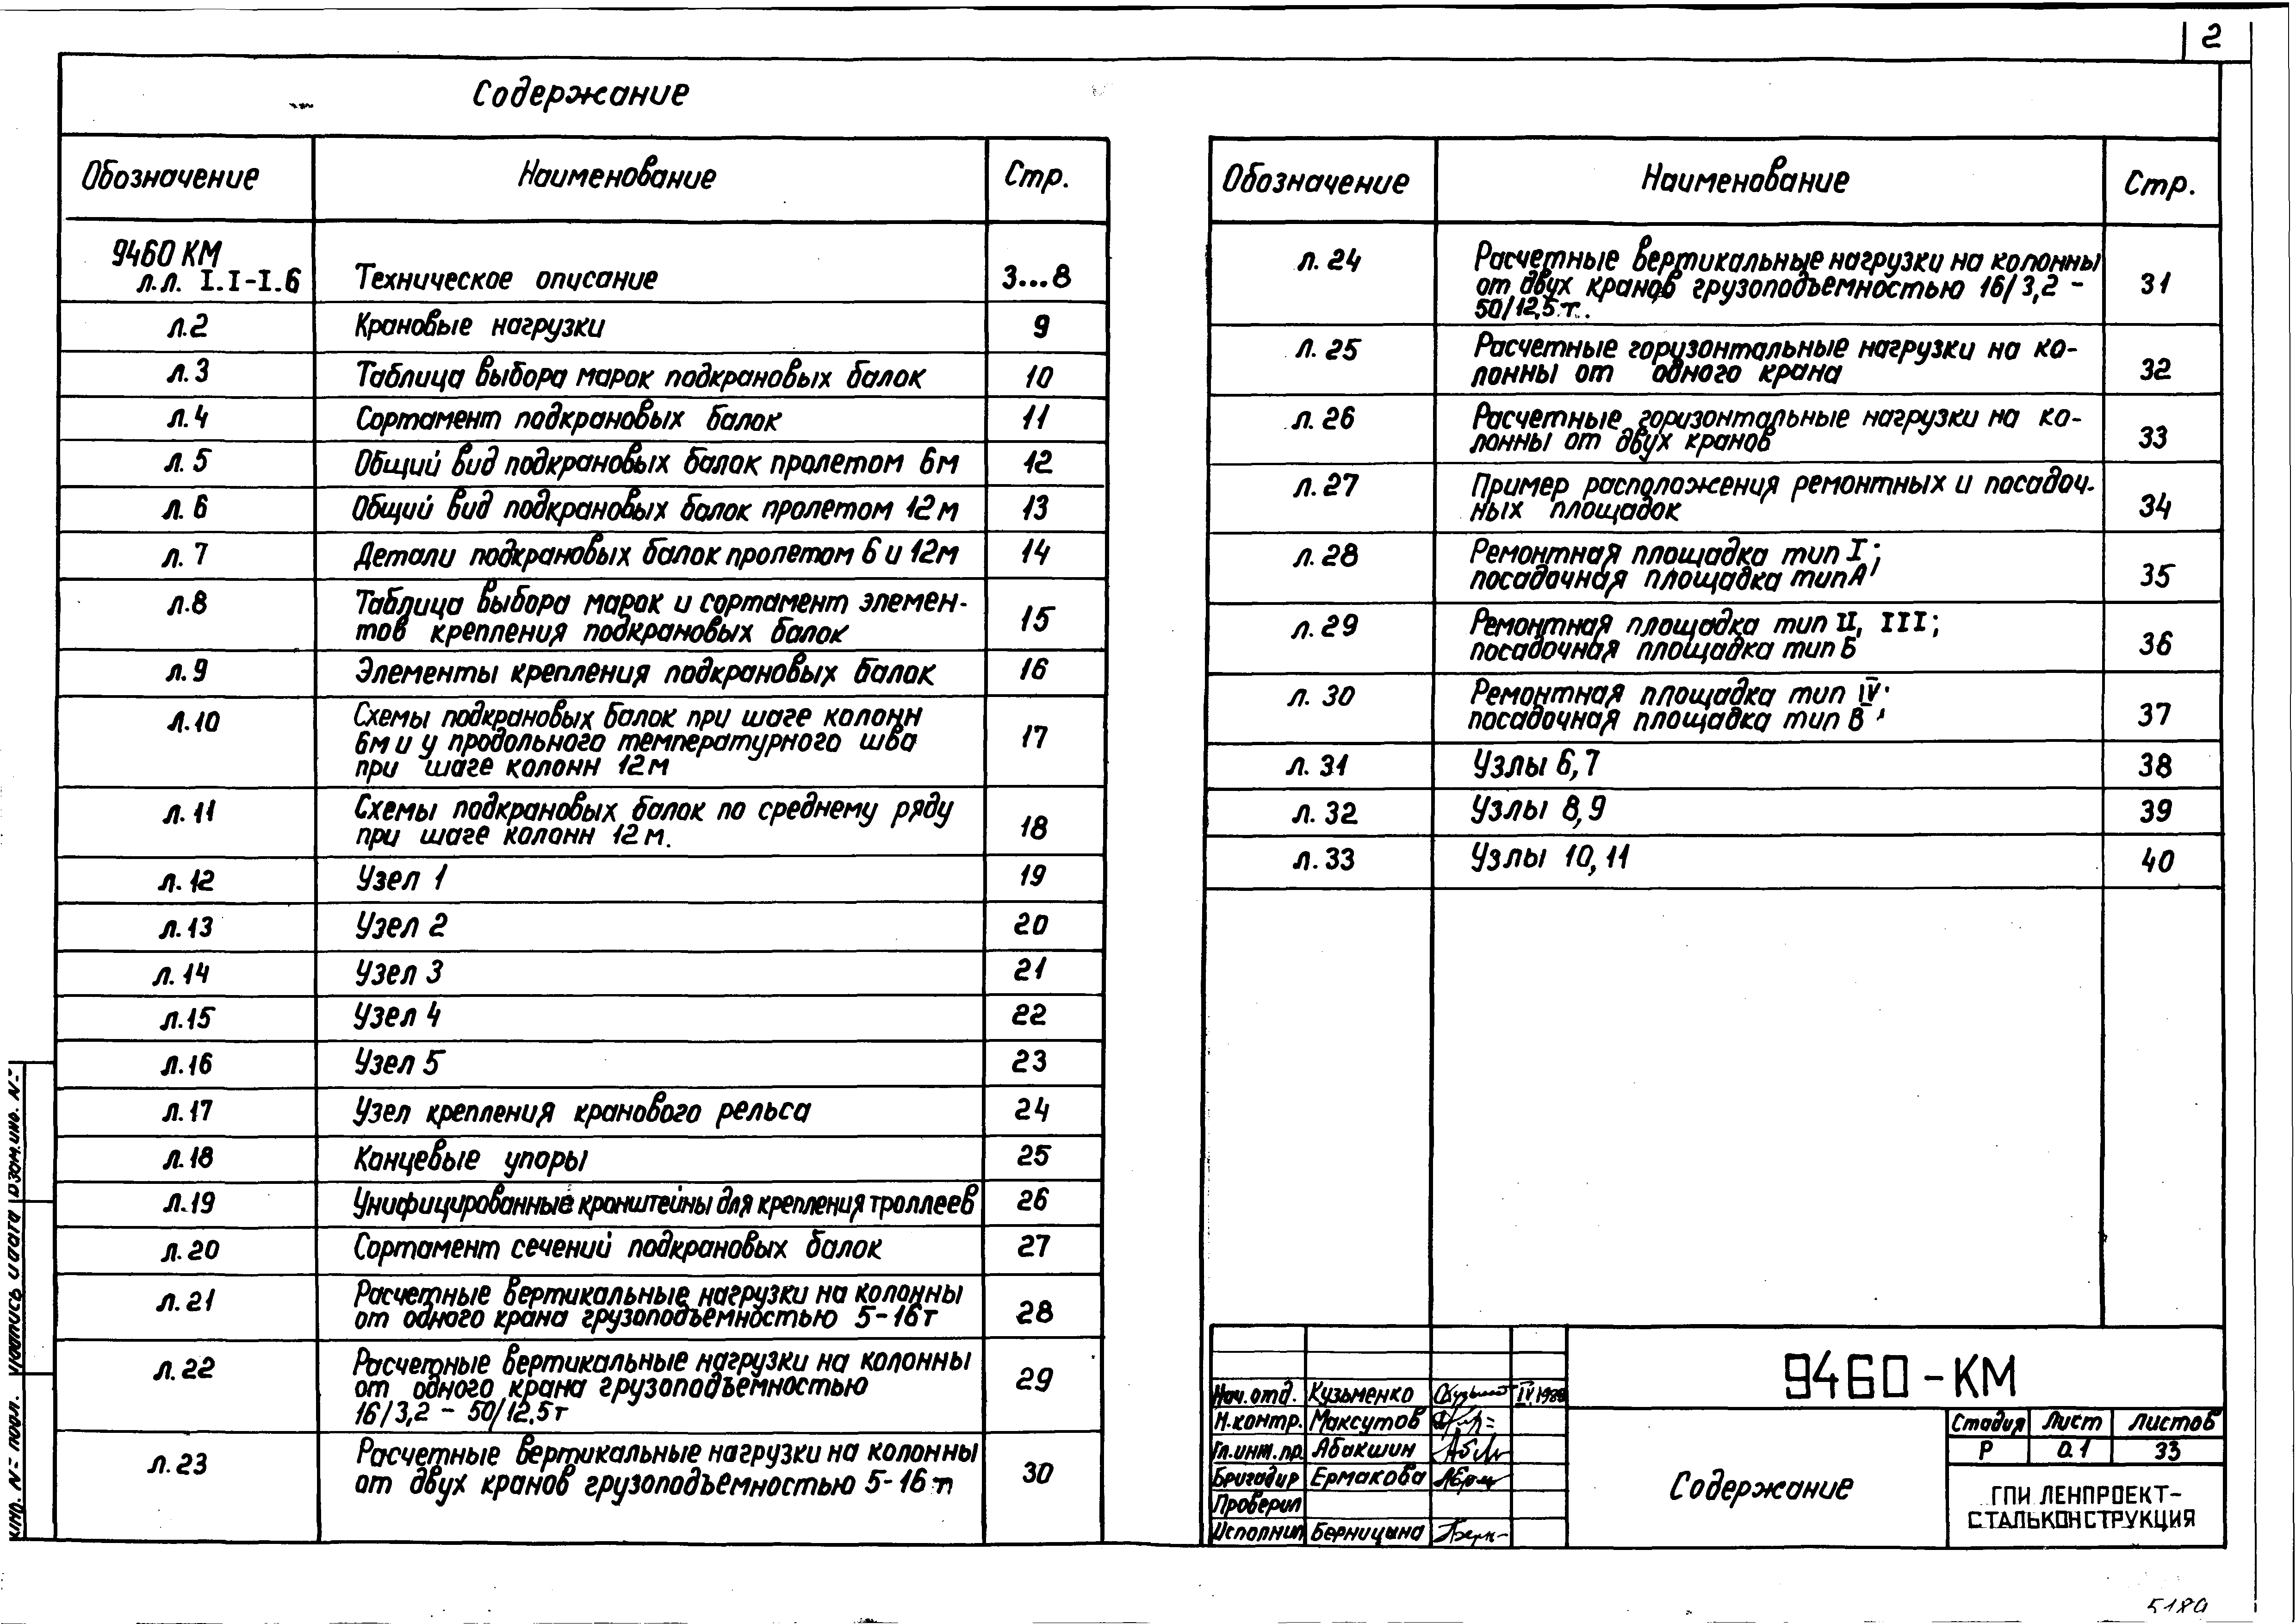 2
Содержание
Обозначение Наименование Стр.
9460 КМ
л.л. I.I-I.6 Техническое описание 3...8
л.2 Крановые нагрузки 9
л.3 Таблица выбора марок подкрановых балок 10
л.4 Сортамент подкрановых балок 11
л.5 Общий вид подкрановых балок пролетом 6м 12
л.6 Общий вид подкрановых балок пролетом 12м 13
л.7 Детали подкрановых балок пролетом 6 и 12м 14
л.8 Таблица выбора марок и сортамент элемен-
тов крепления подкрановых балок 15
л.9 Элементы крепления подкрановых балок 16
л.10 Схемы подкрановых балок при шаге колонн
6м и у продольного температурного шва 17
при шаге колонн 12м
л.11 Схемы подкрановых балок по среднему ряду
при шаге колонн 12м. 18
л.12 Узел 1 19
л.13 Узел 2 20
л.14 Узел 3 21
л.15 Узел 4 22
л.16 Узел 5 23
л.17 Узел крепления кранового рельса 24
л.18 Концевые упоры 25
л.19 Унифицированные кронштейны для крепления троллеев 26
л.20 Сортамент сечений подкрановых балок 27
л.21 Расчетные вертикальные нагрузки на колонны
от одного крана грузоподъемностью 5-16т 28
л.22 Расчетные вертикальные нагрузки на колонны
от одного крана грузоподъемностью 29
16/3,2 - 50/12,5т
л.23 Расчетные вертикальные нагрузки на колонны
от двух кранов грузоподъемностью 5-16т 30
Обозначение Наименование Стр.
л.24 Расчетные вертикальные нагрузки на колонны
от двух кранов грузоподъемностью 16/3,2 - 31
50/12,5т.
л.25 Расчетные горизонтальные нагрузки на ко-
лонны от одного крана 32
л.26 Расчетные горизонтальные нагрузки на ко-
лонны от двух кранов 33
л.27 Пример расположения ремонтных и посадоч-
ных площадок 34
л.28 Ремонтная площадка тип I;
посадочная площадка тип А 35
л.29 Ремонтная площадка тип II, III;
посадочная площадка тип Б 36
л.30 Ремонтная площадка тип IV;
посадочная площадка тип В 37
л.31 Узлы 6,7 38
л.32 Узлы 8,9 39
л.33 Узлы 10,11 40
Нач.отд. Кузьменко IV.1988
Н.контр. Максутов
Гл.инж.пр. Абакшин
Бригадир Ермакова
Проверил
Исполнил Берницына
9460-КМ
Содержание
Стадия Лист Листов
Р 0.1 33
ГПИ ЛЕНПРОЕКТ-
СТАЛЬКОНСТРУКЦИЯ
Инв. № подл. Подпись и дата Взам.инв. №